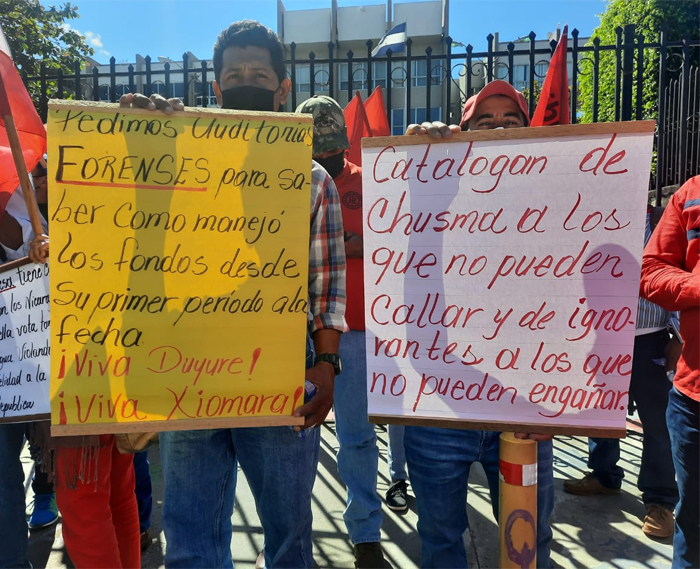 Pedimos Auditorias
FORENSES para sa-
ber como manejó
los fondos desde
Su primer período a la
fecha
¡Viva Duyure!
¡Viva Xiomara!
Catalogan de
Chusma a los
que no pueden
Callar y de igno-
rantes a los que
no pueden engañar.
tiene
los Nicara
vota
Violando
elidad a la
epublica